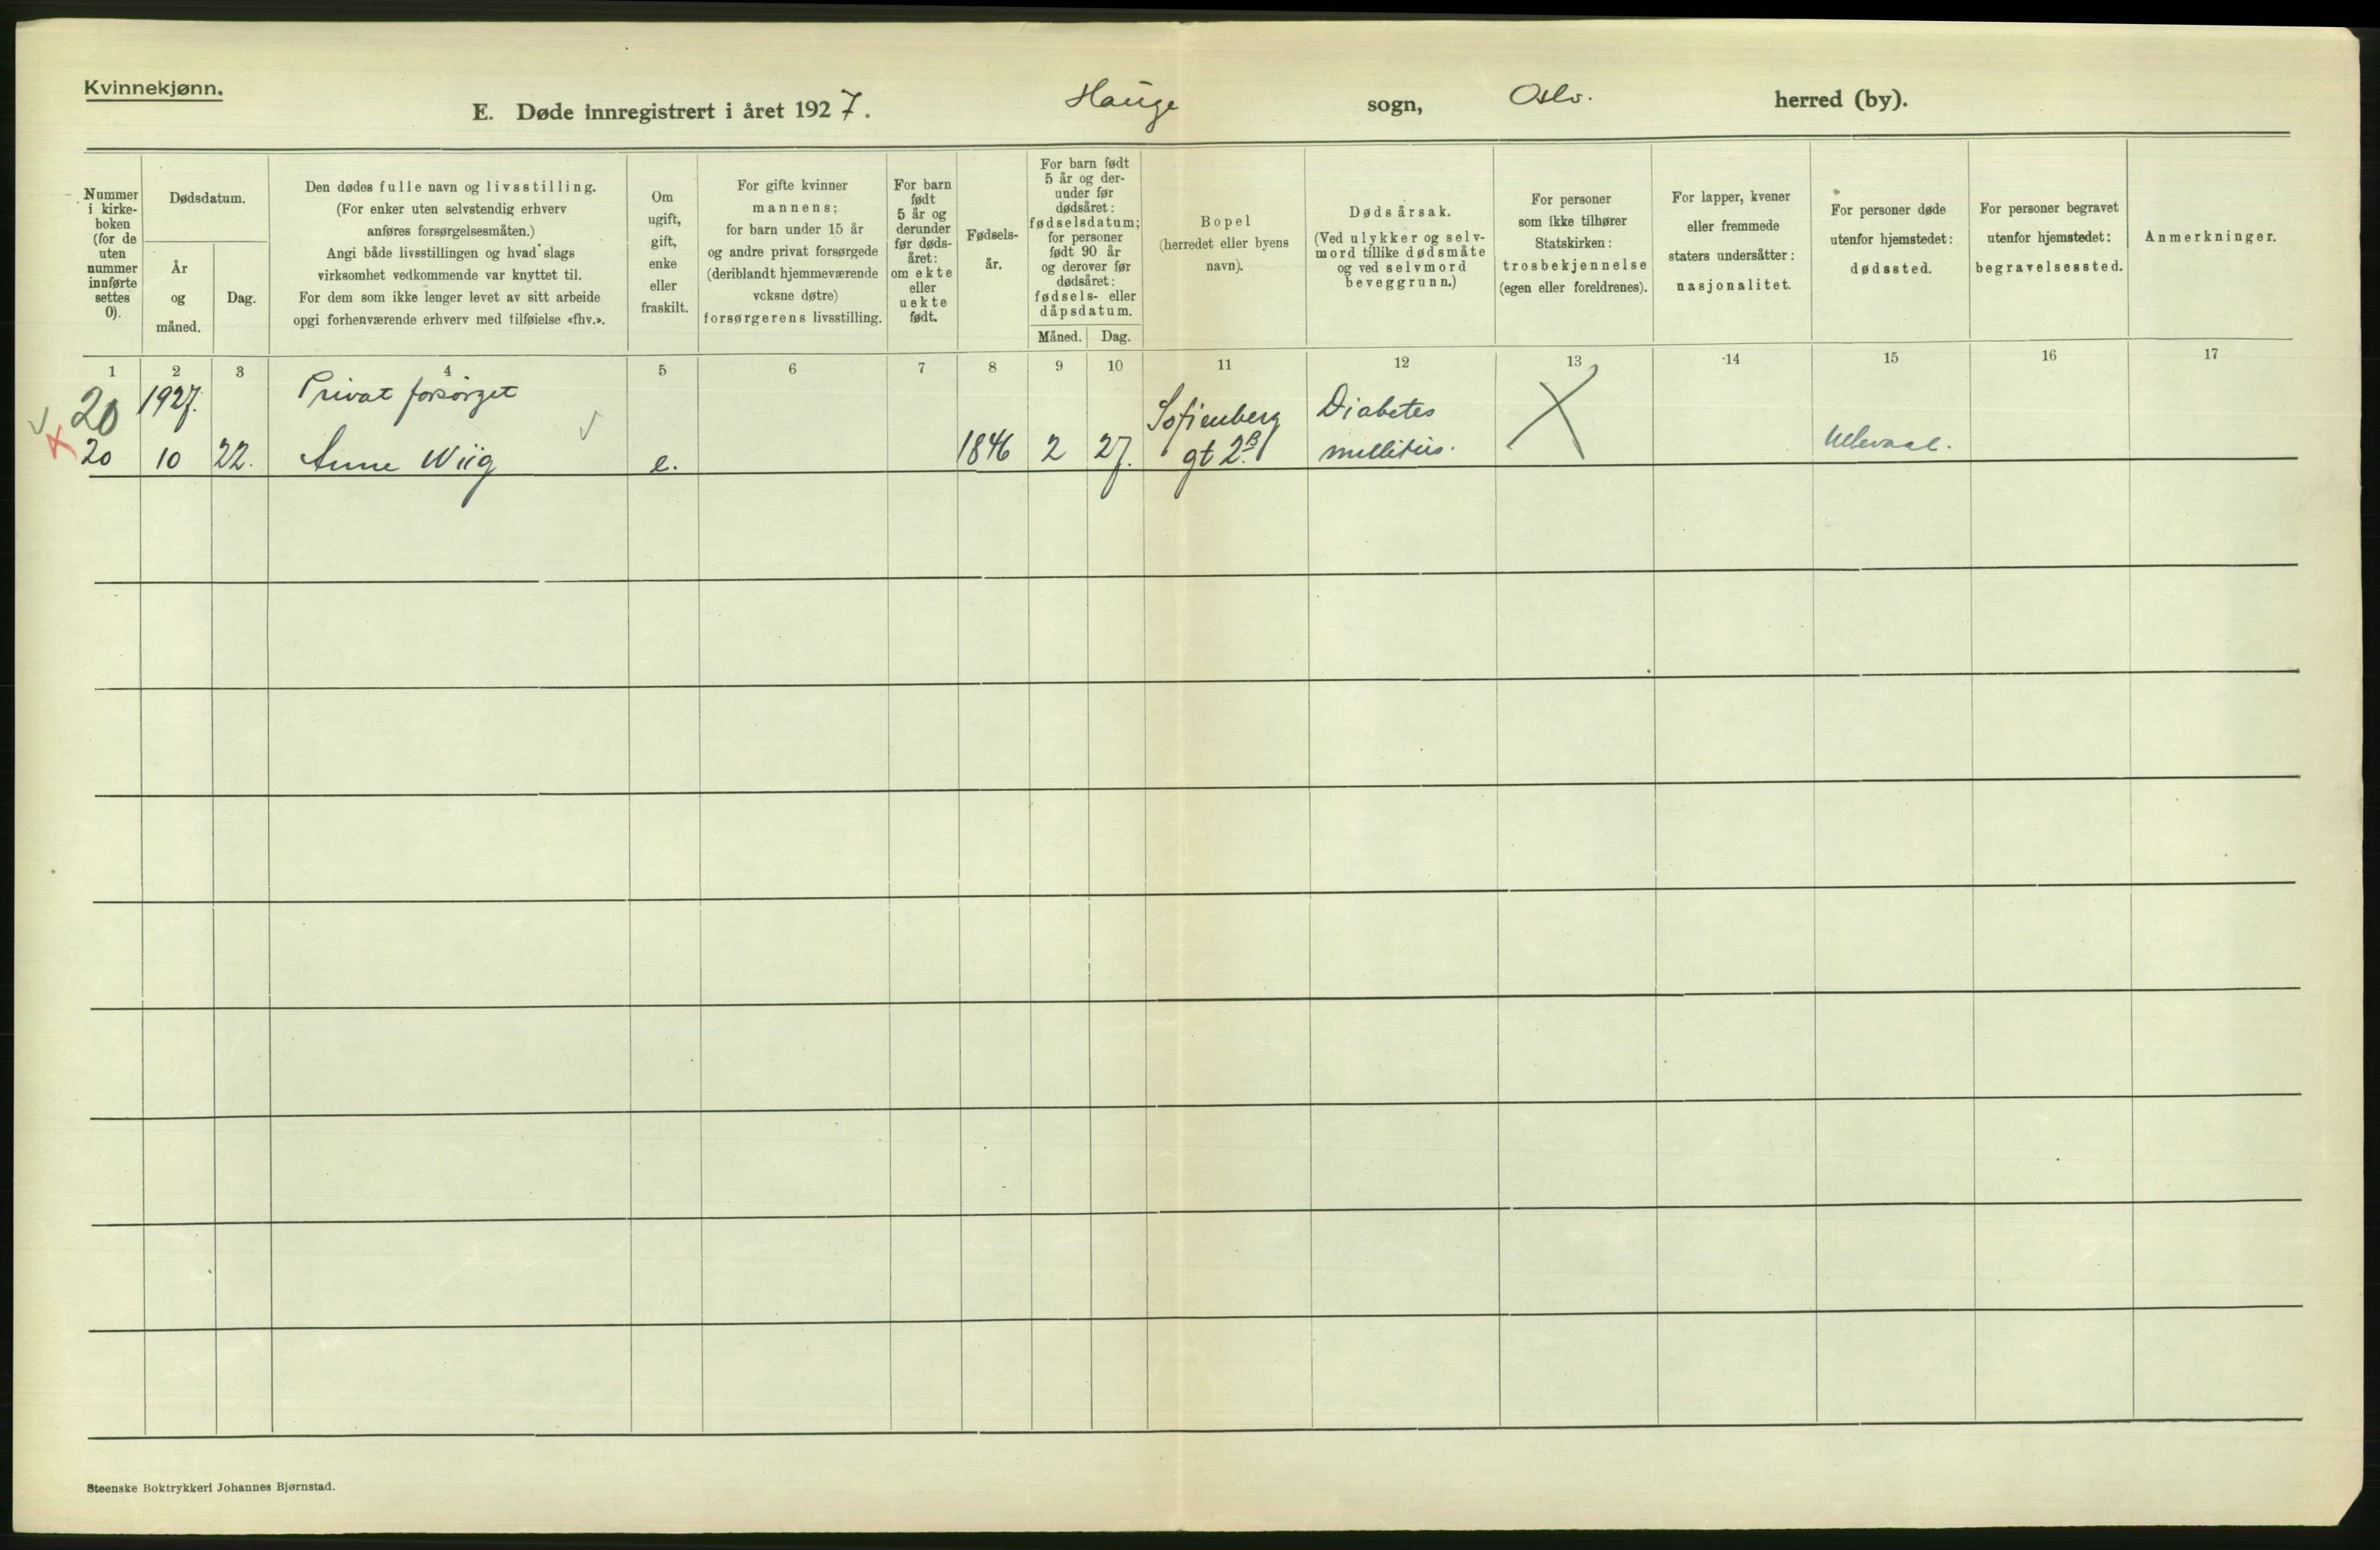 Kvinnekjønn.
E. Døde innregistrert i året 1927. Hauge sogn, Oslo. herred (by).
Nummer
i kirke-
boken
(for de
uten
nummer
innførte
settes
0).
Dødsdatum.
År
og
måned.
Dag.
Den dødes fulle navn og livsstilling.
(For enker uten selvstendig erhverv
anføres forsørgelsesmåten.)
Angi både livsstillingen og hvad slags
virksomhet vedkommende var knyttet til.
For dem som ikke lenger levet av sitt arbeide
opgi forhenværende erhverv med tilføielse «fhv.».
Om
ugift,
gift,
enke
eller
fraskilt.
For gifte kvinner
mannens;
for barn under 15 år
og andre privat forsørgede
(deriblandt hjemmeværende
voksne døtre)
forsørgerens livsstilling.
For barn
født
5 år og
derunder
før døds-
året:
om ekte
eller
uekte
født.
Fødsels-
år.
For barn født
5 år og der-
under før
dødsåret:
fødselsdatum;
for personer
født 90 år
og derover før
dødsåret:
fødsels- eller
dåpsdatum.
Måned. Dag.
Bopel
(herredet eller byens
navn).
Dødsårsak.
(Ved ulykker og selv-
mord tillike dødsmåte
og ved selvmord
beveggrunn.)
For personer
som ikke tilhører
Statskirken:
trosbekjennelse
(egen eller foreldrenes).
For lapper, kvener
eller fremmede
staters undersåtter:
nasjonalitet.
For personer døde
utenfor hjemstedet:
dødssted.
For personer begravet
utenfor hjemstedet:
begravelsessted.
Anmerkninger.
1 2 3 4 5 6 7 8 9 10 11 12 13 14 15 16 17
20 1927. Privat forsørget Sofienberg Diabetes
20 10 22. Anne Wiig e. 1846 2 27. gt 2B. mellitus. Ullevaal.
Steenske Boktrykkeri Johannes Bjørnstad.